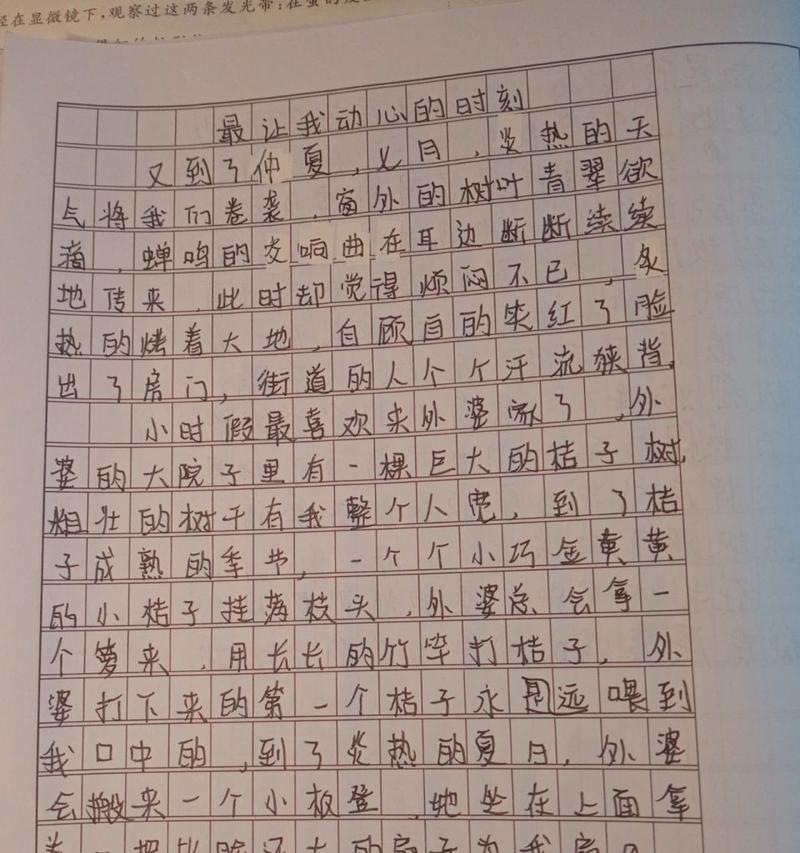 在显微镜下，观察过这两条发光带：在萤的
最让我动心的时刻
又到了仲夏，七月，炎热的天
气将我们卷袭，窗外的树叶青翠欲
滴，蝉鸣的交响曲在耳边断断续续
地传来，此时却觉得烦闷不已，炙
热的烤着大地，自顾自的笑红了脸
出了房门，街道的人个个汗流狭背，
小时假最喜欢来外婆家了，外
婆的大院子里有一棵巨大的桔子树，
粗壮的树干有我整个人宽，到了桔
子成熟的季节，一个个小巧金黄黄
的小桔子挂落枝头，外婆总会拿一
个箩来，用长长的竹竿打桔子，外
婆打下来的第一个桔子永远喂到
我口中的，到了炎热的夏日，外婆
会搬来一个小板登，她坐在上面拿
着一把比脸还大的扇子为我扇